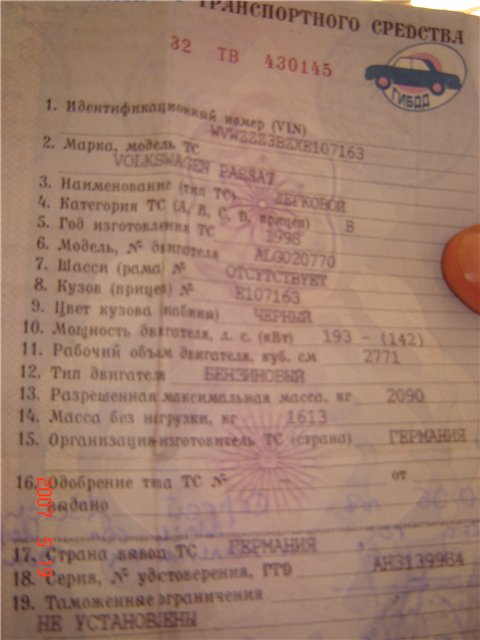 ТРАНСПОРТНОГО СРЕДСТВА
32 ТВ 430145
ГИБДД
1. Идентификационный номер (VIN)
WVWZZZ3BZXE107163
2. Марка, модель ТС
VOLKSWAGEN PASSAT
3. Наименование (тип ТС) ЛЕГКОВОЙ
4. Категория ТС (А, В, С, D, прицеп) В
5. Год изготовления ТС 1998
6. Модель, № двигателя ALG020770
7. Шасси (рама) № ОТСУТСТВУЕТ
8. Кузов (прицеп) № E107163
9. Цвет кузова (кабины) ЧЕРНЫЙ
10. Мощность двигателя, л. с. (кВт) 193 - (142)
11. Рабочий объем двигателя, куб. см 2771
12. Тип двигателя БЕНЗИНОВЫЙ
13. Разрешенная максимальная масса, кг 2090
14. Масса без нагрузки, кг 1613
15. Организация-изготовитель ТС (страна) ГЕРМАНИЯ
16. Одобрение типа ТС № - от
выдано
17. Страна вывоза ТС ГЕРМАНИЯ
18. Серия, № удостоверения, ГТД АН3139984
19. Таможенные ограничения
НЕ УСТАНОВЛЕНЫ
2007 5 19